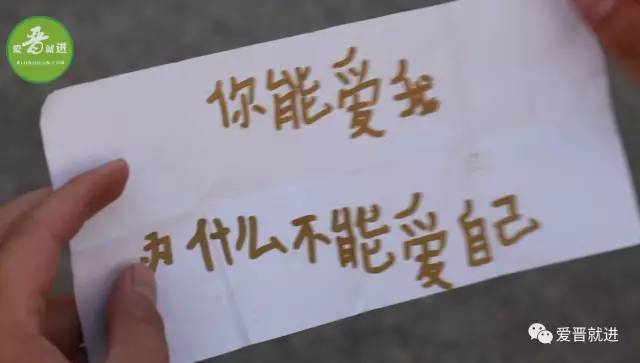 爱晋就进
你能爱我
为什么不能爱自己
爱晋就进